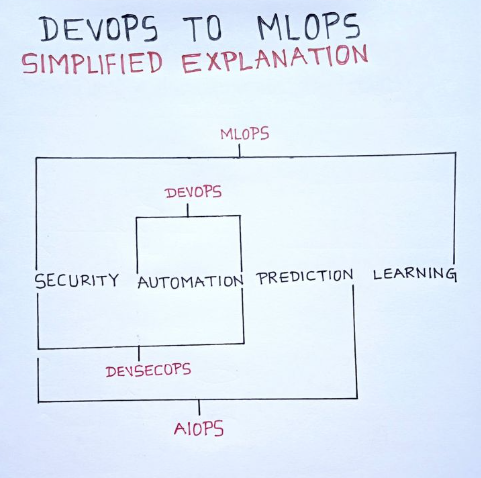 DEVOPS TO MLOPS
SIMPLIFIED EXPLANATION
MLOPS
DEVOPS
SECURITY AUTOMATION PREDICTION LEARNING
DEVSECOPS
AIOPS